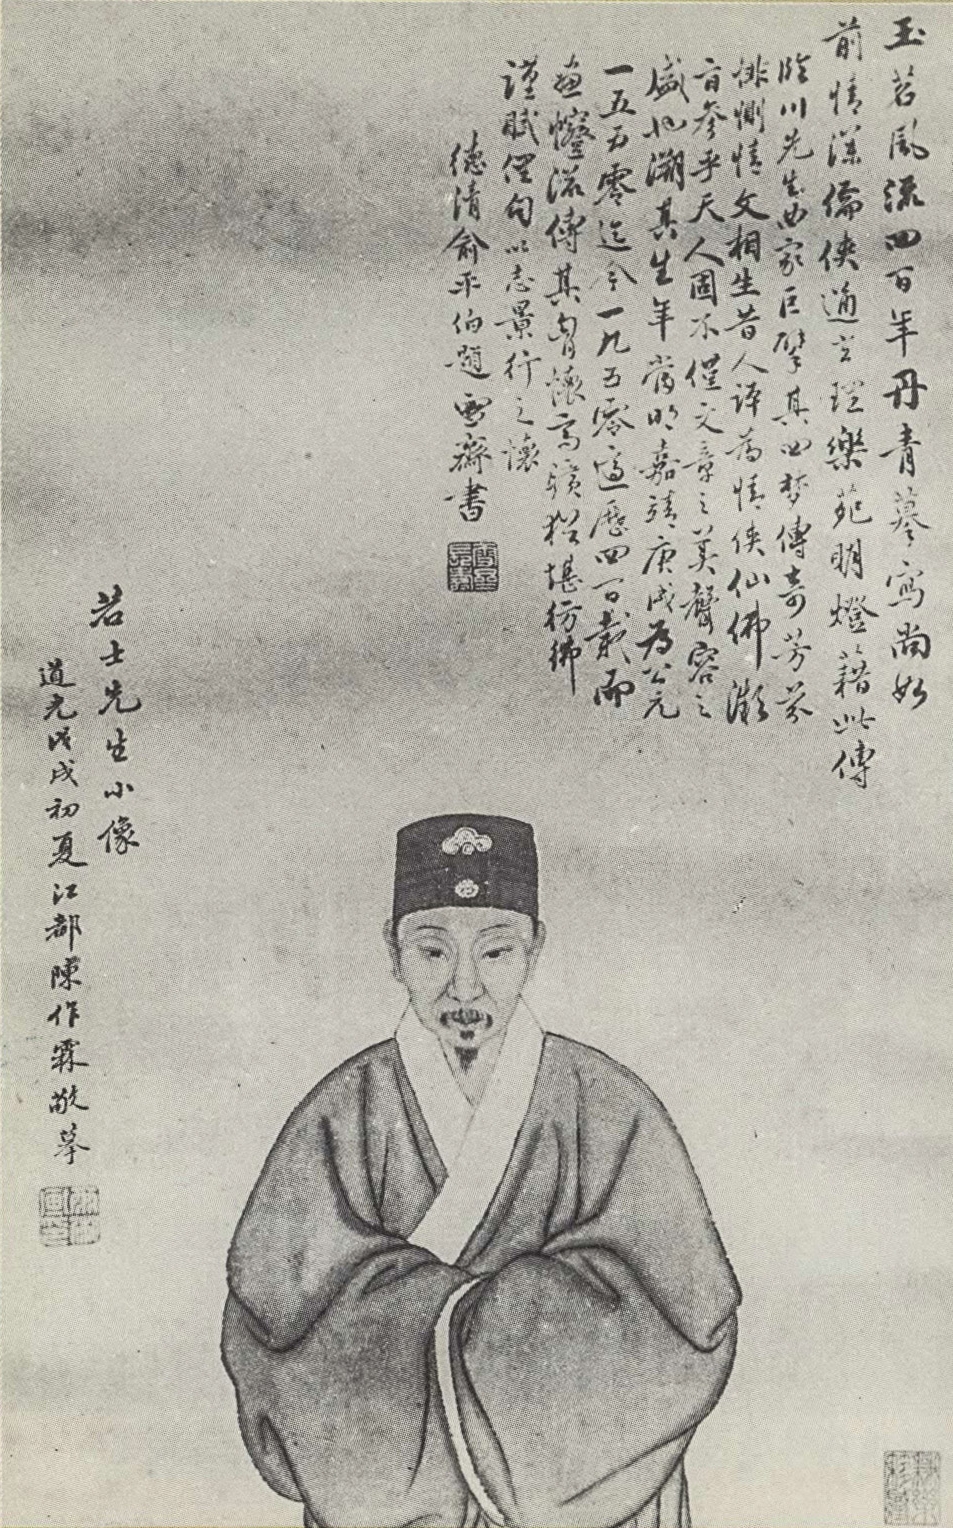 玉茗風流四百年丹青摹寫尚如
前情深倫俠通玄理樂苑明燈藉此傳
臨川先生曲家巨擘其四夢傳奇芳芬
悱惻情文相生昔人評為情俠仙佛
旨參乎天人固不僅文章之美聲容之
盛也溯其生年當明嘉靖庚戌為公元
一五五零迄今一九五零適歷四百載而
遺傳其胷懷高曠猶堪彷彿
謹賦俚句以志景行之懷
德清俞平伯題雪齋書
若士先生小像
道光戊戌初夏江都陳作霖敬摹